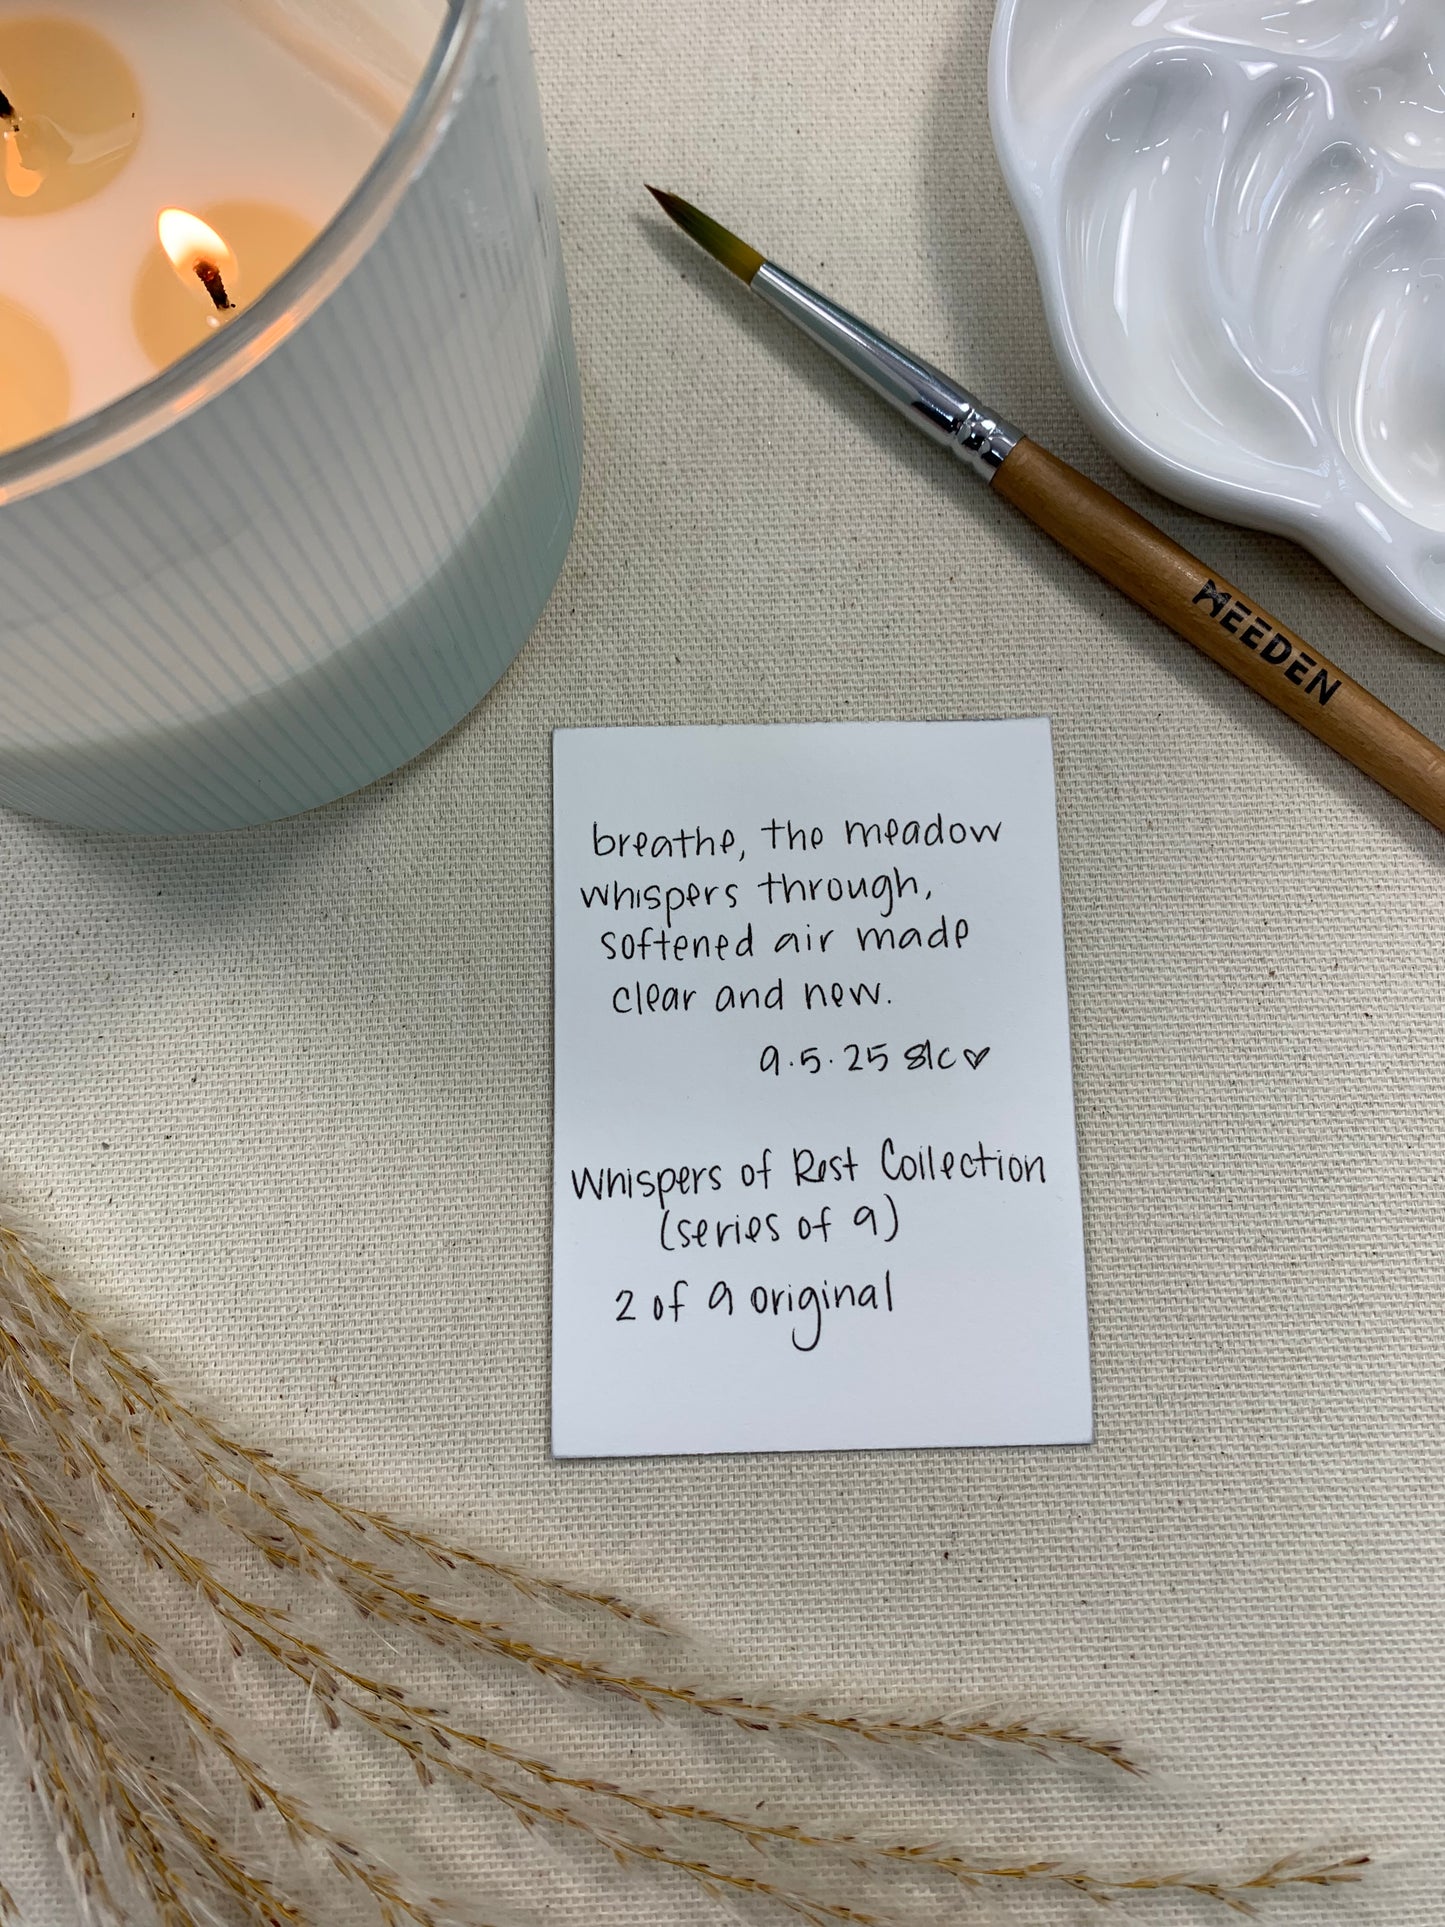 MEEDEN
breathe, the meadow
whispers through,
softened air made
clear and new.
9.5.25 slc♡
Whispers of Rest Collection
(series of 9)
2 of 9 original